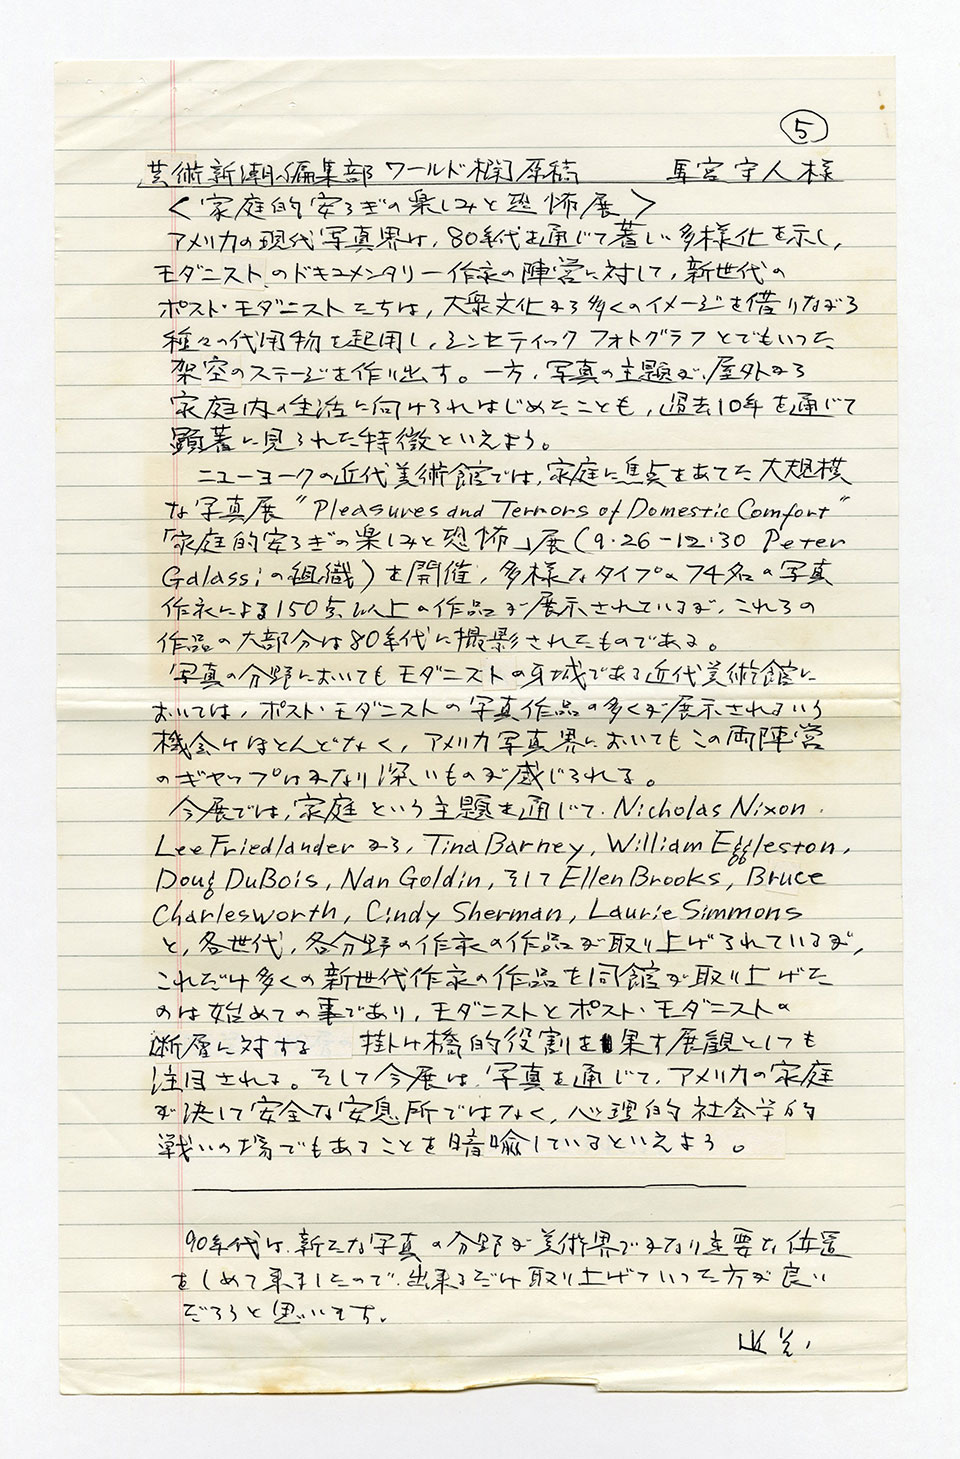 ⑤
芸術新潮編集部 ワールド欄原稿 馬宮守人様
<家庭的安らぎの楽しみと恐怖展>
アメリカの現代写真界は、80年代を通じて著しい多様化を示し、
モダニストのドキュメンタリー作家の陣営に対して、新世代の
ポスト・モダニストたちは、大衆文化から多くのイメージを借りながら
種々の代用物を起用し、シンセティックフォトグラフとでもいった
架空のステージを作り出す。一方、写真の主題が、屋外から
家庭内の生活に向けられはじめたことも、過去10年を通じて
顕著に見られた特徴といえよう。
ニューヨークの近代美術館では、家庭に焦点をあてた大規模
な写真展 "Pleasures and Terrors of Domestic Comfort"
「家庭的安らぎの楽しみと恐怖」展(9・26-12・30 Peter
Galassiの組織)を開催、多様なタイプの74名の写真
作家による150点以上の作品が展示されているが、これらの
作品の大部分は80年代に撮影されたものである。
写真の分野においてもモダニストの牙城である近代美術館に
おいては、ポスト・モダニストの写真作品の多くが展示されるという
機会はほとんどなく、アメリカ写真界においてもこの両陣営
のギャップはかなり深いものが感じられる。
今展では、家庭という主題を通じて、Nicholas Nixon,
Lee Friedlanderから、Tina Barney, William Eggleston,
Doug DuBois, Nan Goldin, そしてEllen Brooks, Bruce
Charlesworth, Cindy Sherman, Laurie Simmons
と、各世代、各分野の作家の作品が取り上げられているが、
これだけ多くの新世代作家の作品を同館が取り上げた
のは始めての事であり、モダニストとポスト・モダニストの
断層に対する 掛け橋的役割を果す展観としても
注目される。そして今展は、写真を通じて、アメリカの家庭
が決して安全な安息所ではなく、心理的社会学的
戦いの場でもあることを暗喩しているといえよう。
90年代は、新たな写真の分野が美術界でかなり主要な位置
をしめて来ましたので、出来るだけ取り上げていった方が良い
だろうと思います。